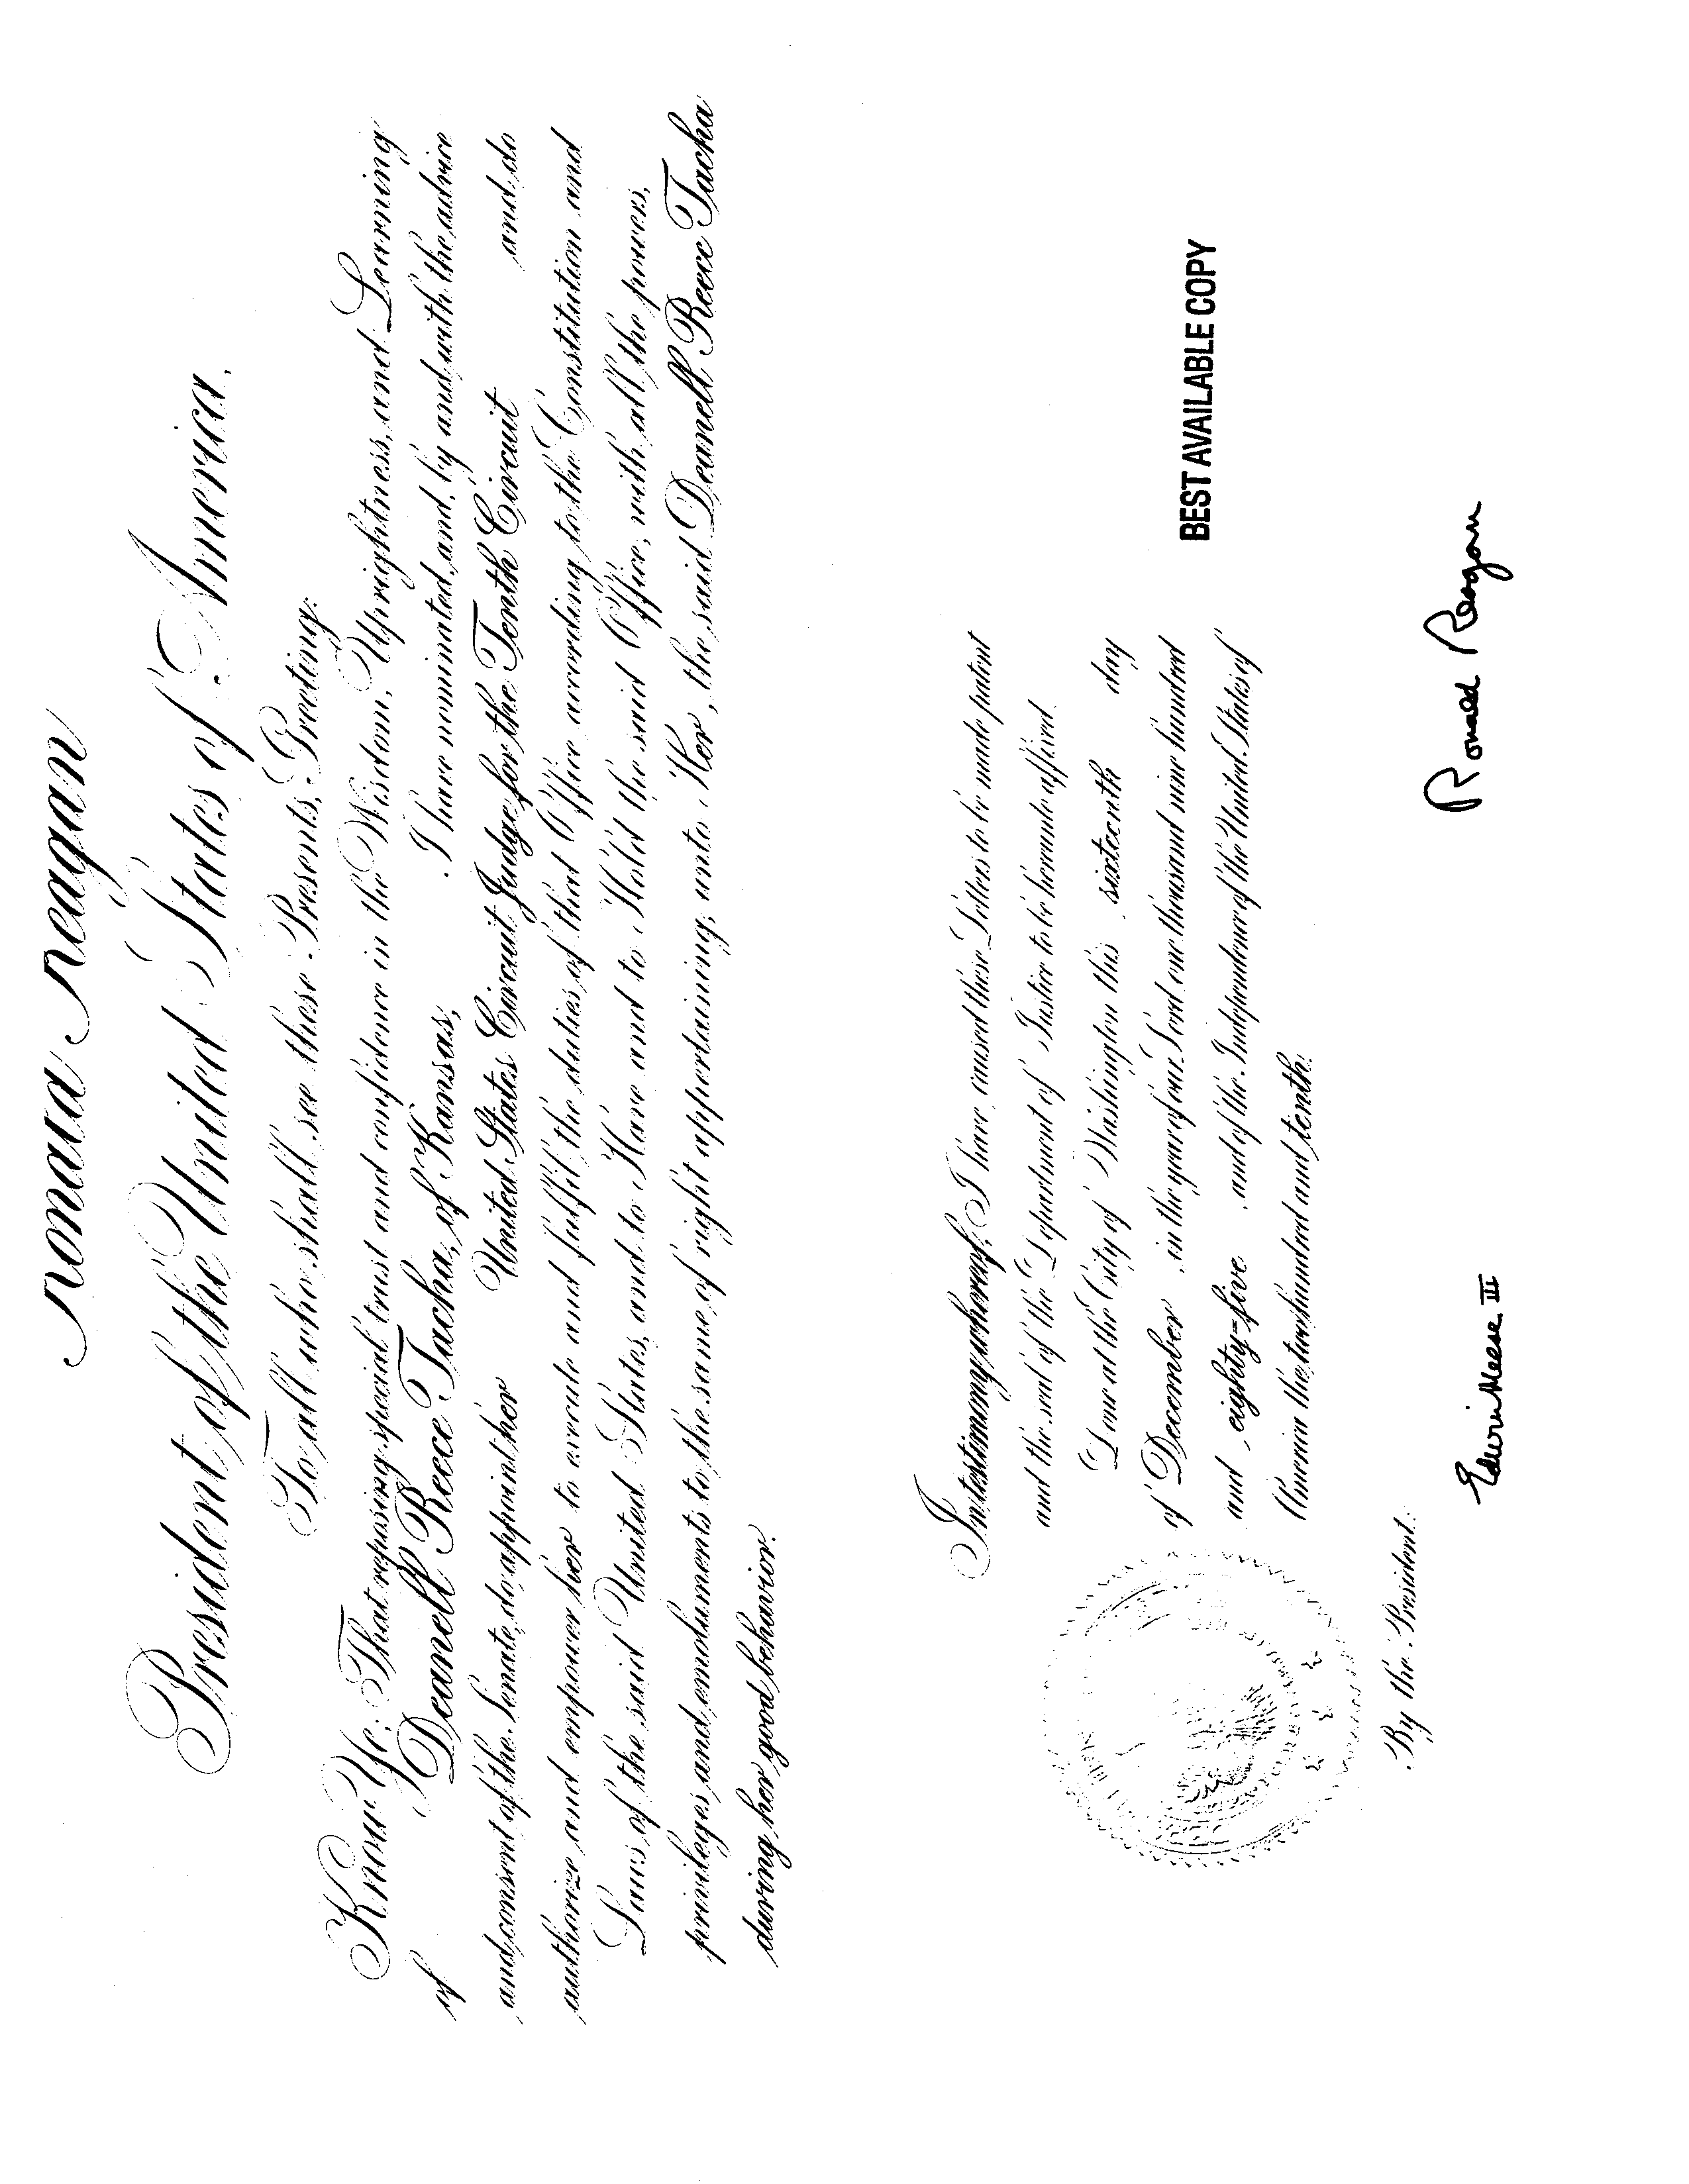 Ronald Reagan
President of the United States of America,
To all who shall see these Presents, Greeting:
Know Ye; That reposing special trust and confidence in the Wisdom, Uprightness, and Learning
of Deanell Reece Tacha, of Kansas, I have nominated, and, by and with the advice
and consent of the Senate, do appoint her United States Circuit Judge for the Tenth Circuit and do
authorize and empower her to execute and fulfil the duties of that Office according to the Constitution and
Laws of the said United States, and to Have and to Hold the said Office, with all the powers,
privileges and emoluments to the same of right appertaining, unto Her, the said Deanell Reece Tacha
during her good behavior.
In testimony whereof, I have caused these Letters to be made patent
and the seal of the Department of Justice to be hereunto affixed.
Done at the City of Washington this sixteenth day
of December, in the year of our Lord one thousand nine hundred
and eighty-five, and of the Independence of the United States of
America the two hundred and tenth.
BEST AVAILABLE COPY
By the President:
Ronald Reagan
Edwin Meese III